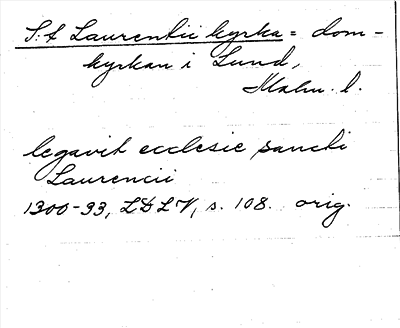 S:t Laurentii kyrka = dom-
kyrkan i Lund,
Malm. l.
legavit ecclesie sancti
Laurencii
1300-93, LDLV, s. 108. orig.